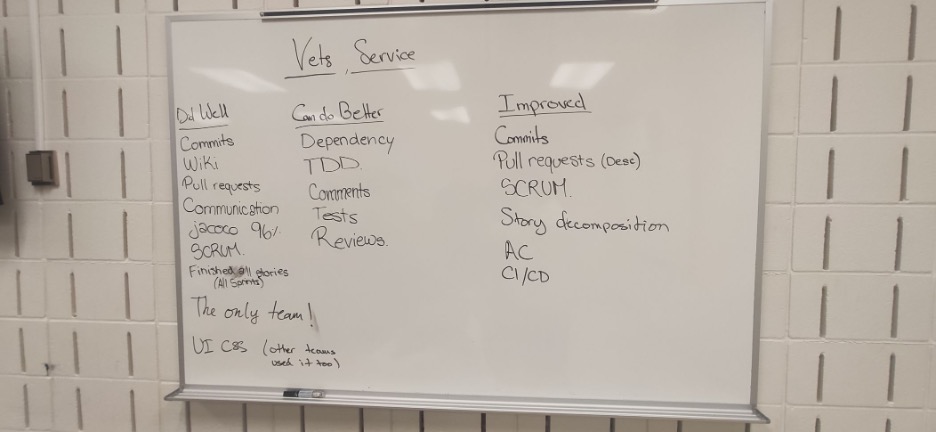 Vets Service
Did Well
Commits
Wiki
Pull requests
Communication
jacoco 96%
SCRUM.
Finished all stories
(All Sprints)
The only team!
UI CSS (other teams
used it too)
Can do Better
Dependency
TDD.
Comments
Tests
Reviews.
Improved
Commits
Pull requests (Desc)
SCRUM.
Story decomposition
AC
CI/CD